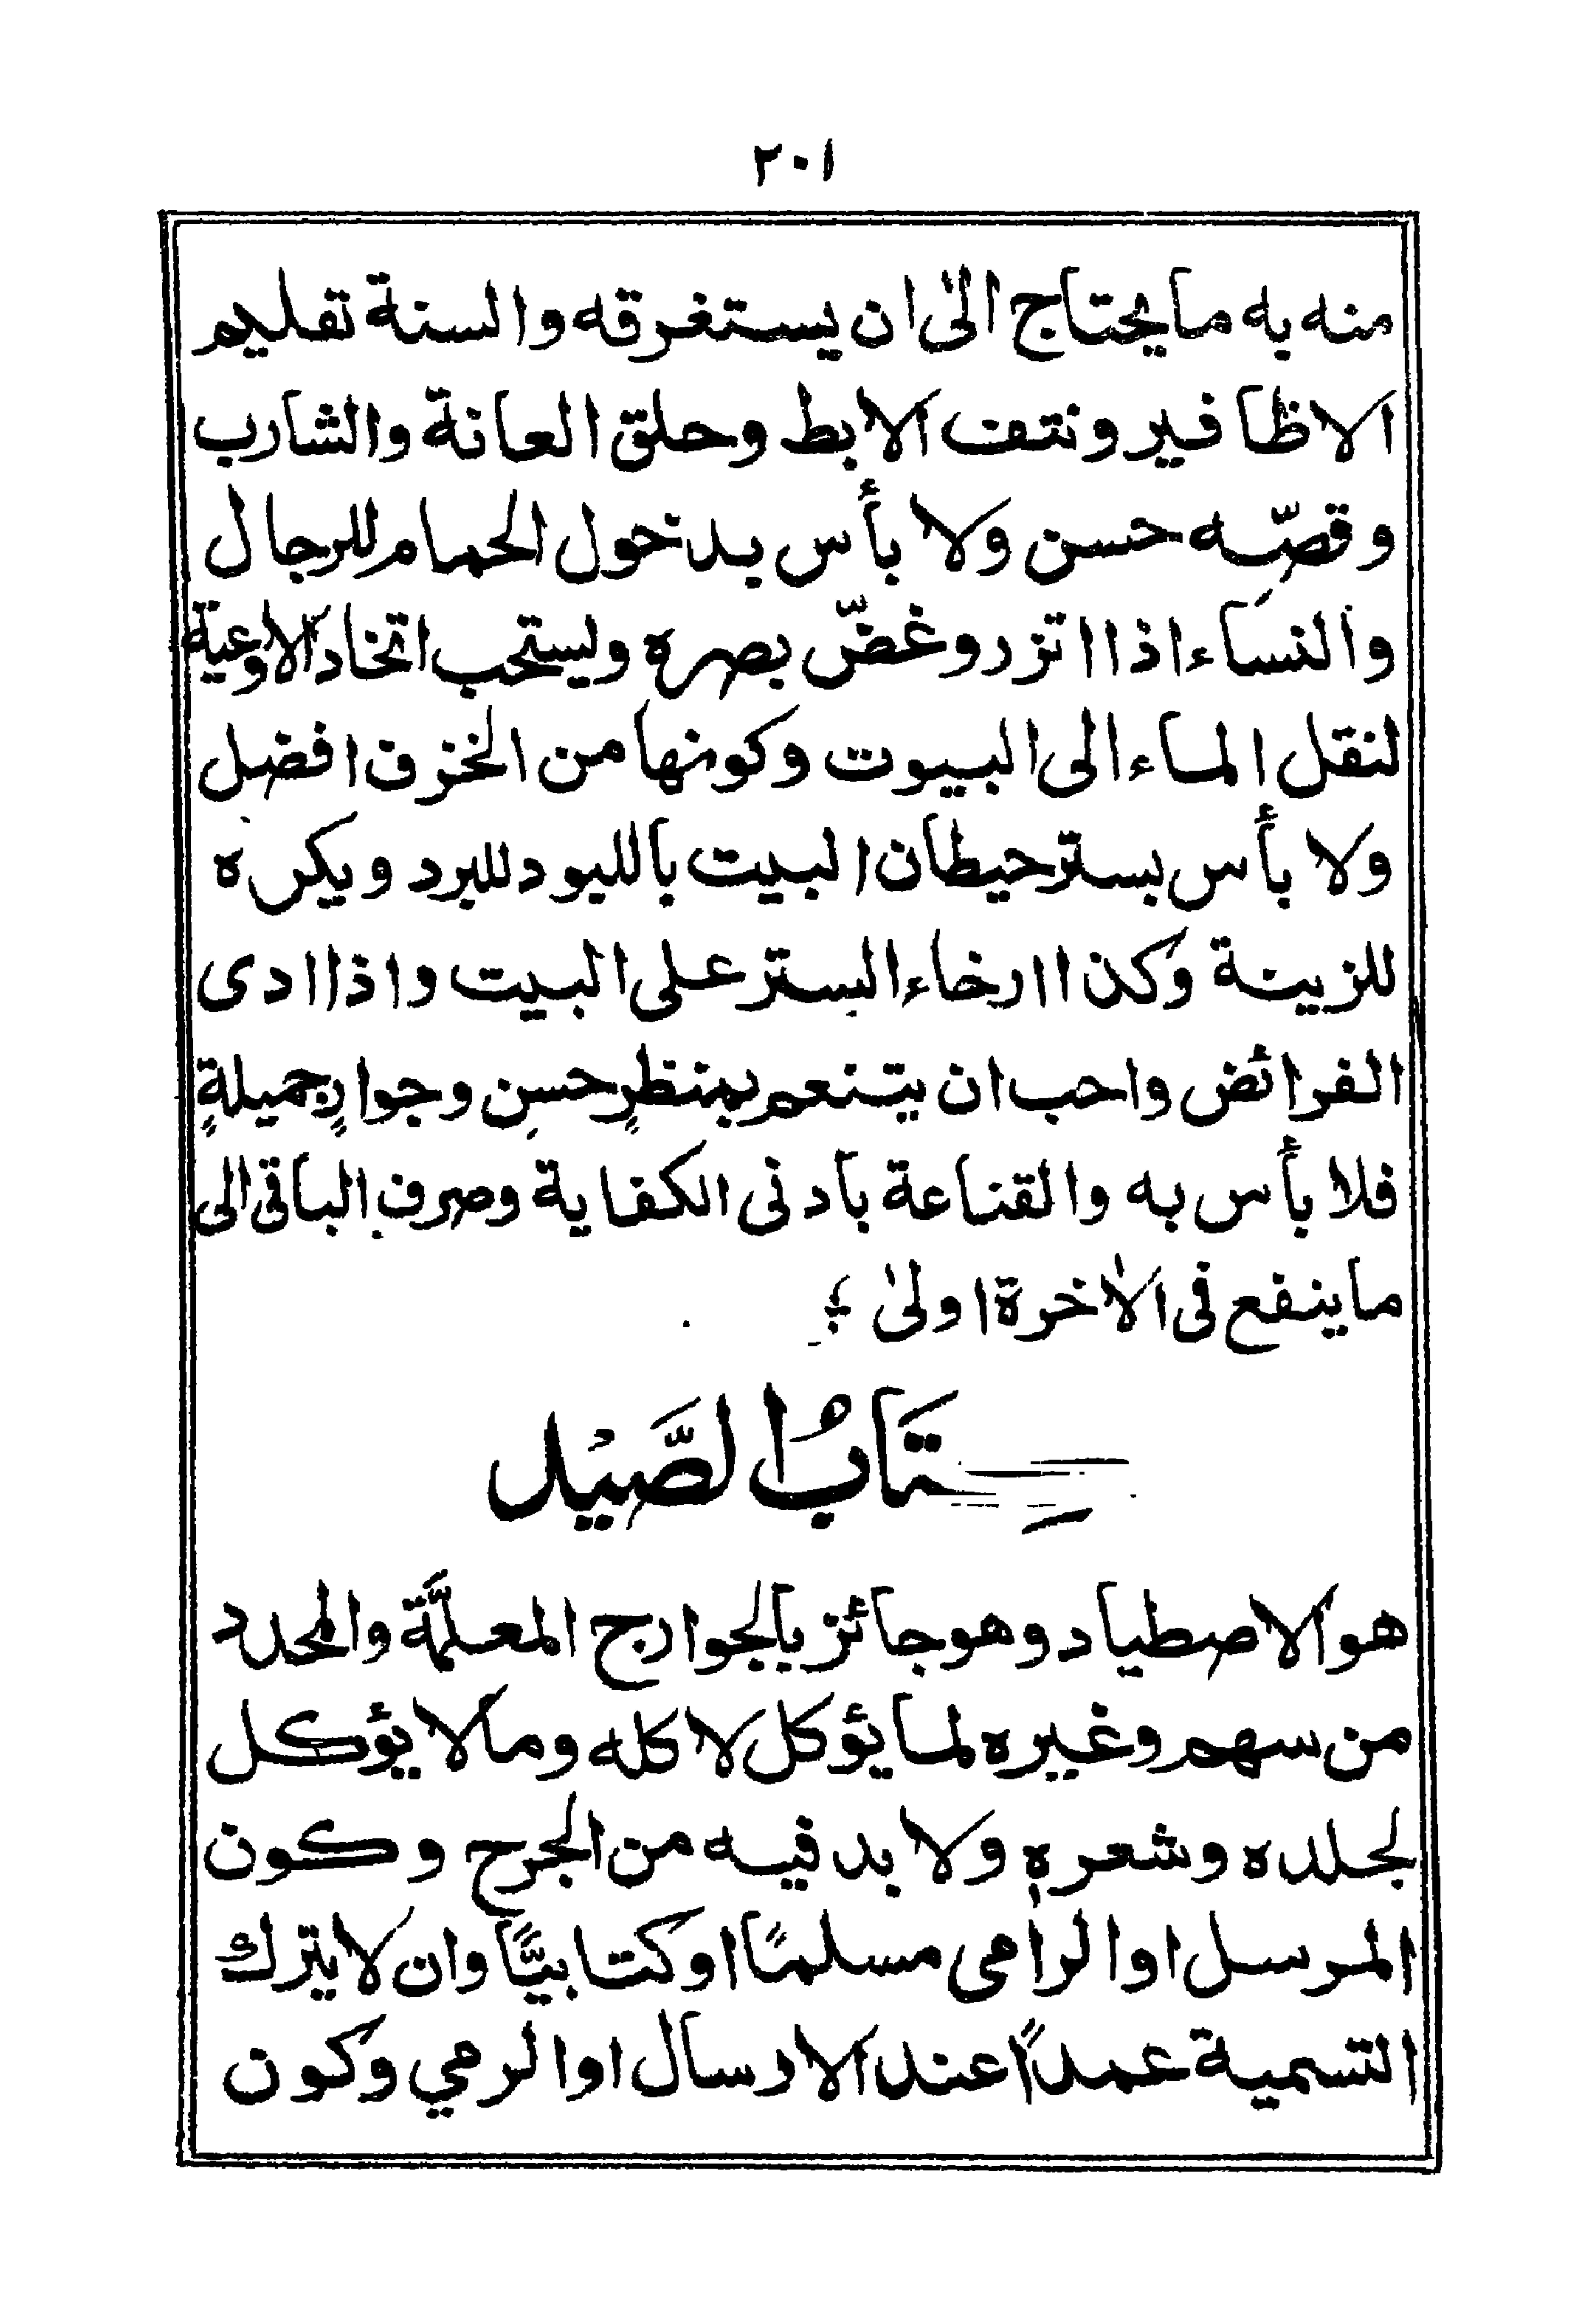 ٢٠١
منه به ما يحتاج الىٰ ان يستغرقه والسنة تقليم
الاظافير ونتف الابط وحلق العانة والشارب
وقصّه حسن ولا بأس بدخول الحمام للرجال
والنساء اذا اتزر وغضّ بصره ويستحب اتخاذ الاوعية
لنقل الماء الى البيوت وكونها من الخزف افضل
ولا بأس بستر حيطان البيت بالليود للبرد ويكره
للزينة وكذا ارخاء الستر على البيت واذا ادى
الفرائض واحب ان يتنعم بمنظرٍ حسنٍ وجوارٍ جميلةٍ
فلا بأس به والقناعة بادنى الكفاية وصرف الباقى الى
ما ينفع فى الاٰخرة اولىٰ ؛
كِتَابُ الصَّيْد
هو الاصطياد وهو جائز بالجوارح المعلّمَة والمحدد
من سهم وغيره لما يؤكل لاكله وما لا يؤكل
لجلده وشعرهٖ ولا بد فيه من الجرح وكون
المرسل اوالرامى مسلمًا اوكتابيًّا وان لا يترك
التسمية عمداً عند الارسال اوالرمي وكون